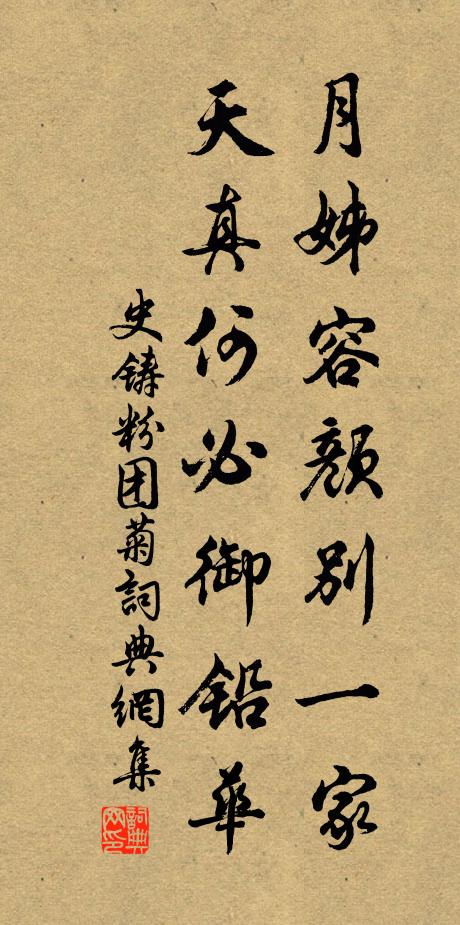 月姊容颜别一家
天真何必御铅華
史铸粉团菊詞典網集
詞典网印